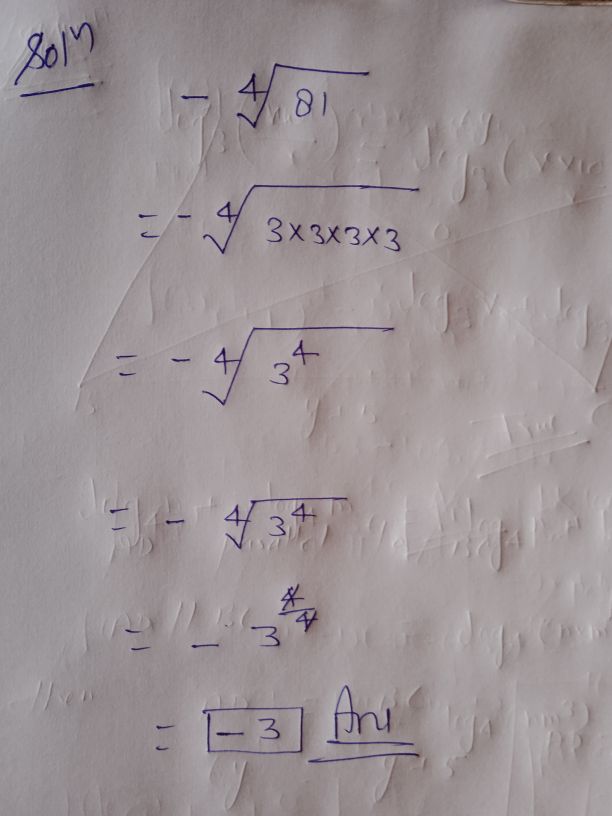 Solⁿ
- ∜81
= - ∜3×3×3×3
= - ∜3⁴
= - ∜3⁴
= - 3^(4/4)
= -3 Ans